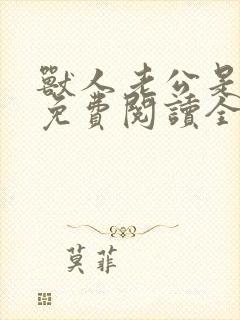 獸人老公是
免費閱讀全
莫菲